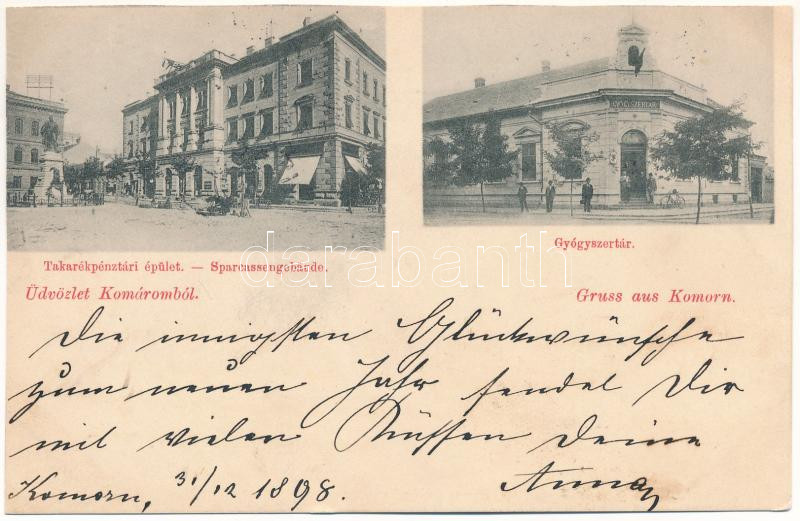 GYÓGYSZERTÁR
Takarékpénztári épület. — Sparcassengebäude.
Gyógyszertár.
Üdvözlet Komáromból.
Gruss aus Komorn.
darabanth
Die innigsten Glückwünsche
zum neuen Jahr sendet Dir
mit vielen Küssen Deine
Anna
Komorn, 31/12 1898.